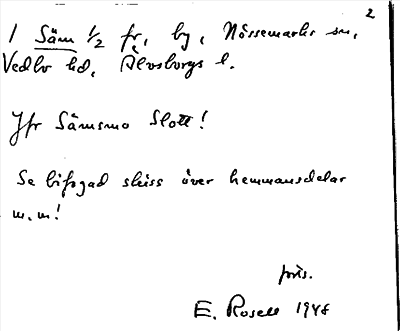 2
1 Säm ½ fr, by, Nössemarks sn,
Vedbo hd, Älvsborgs l.
Jfr Sämsmo Slott!
Se bifogad skiss över hemmansdelar
m.m!
E. Rosell 1948